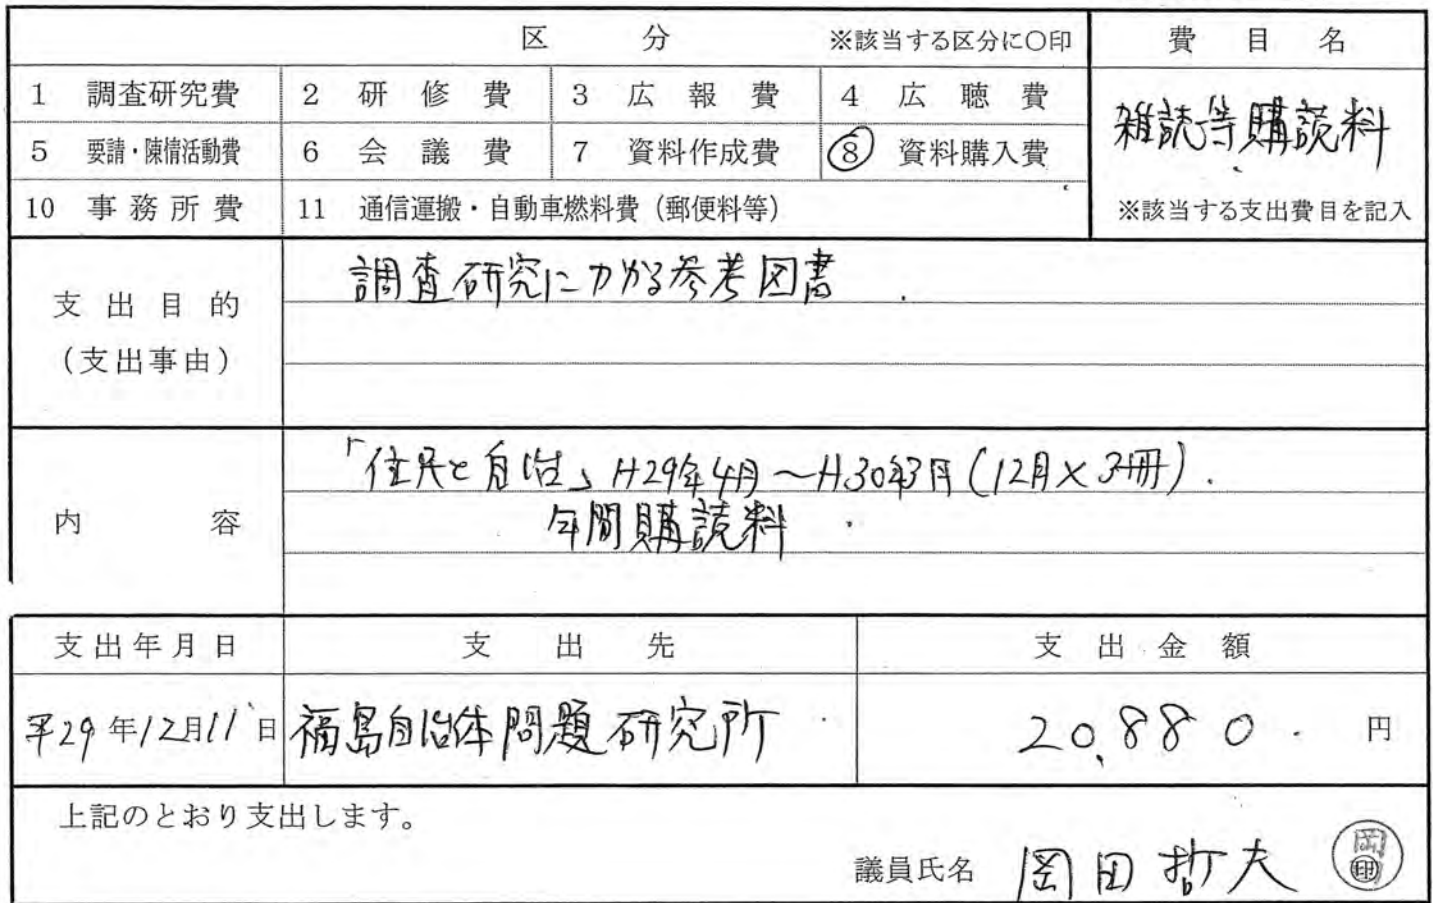 区 分 ※該当する区分に○印 費 目 名
1 調査研究費 2 研 修 費 3 広 報 費 4 広 聴 費
雑誌等購読料
5 要請・陳情活動費 6 会 議 費 7 資料作成費 ⑧ 資料購入費
10 事 務 所 費 11 通信運搬・自動車燃料費（郵便料等） ※該当する支出費目を記入
支 出 目 的
（支出事由）
調査研究にかかる参考図書
内 容
「住民と自治」H29年4月～H.30年3月（12月×3冊）.
年間購読料
支 出 年 月 日 支 出 先 支 出 金 額
平29年12月11日 福島自治体問題研究所 20,880. 円
上記のとおり支出します。
議員氏名 岡田哲夫 岡 印